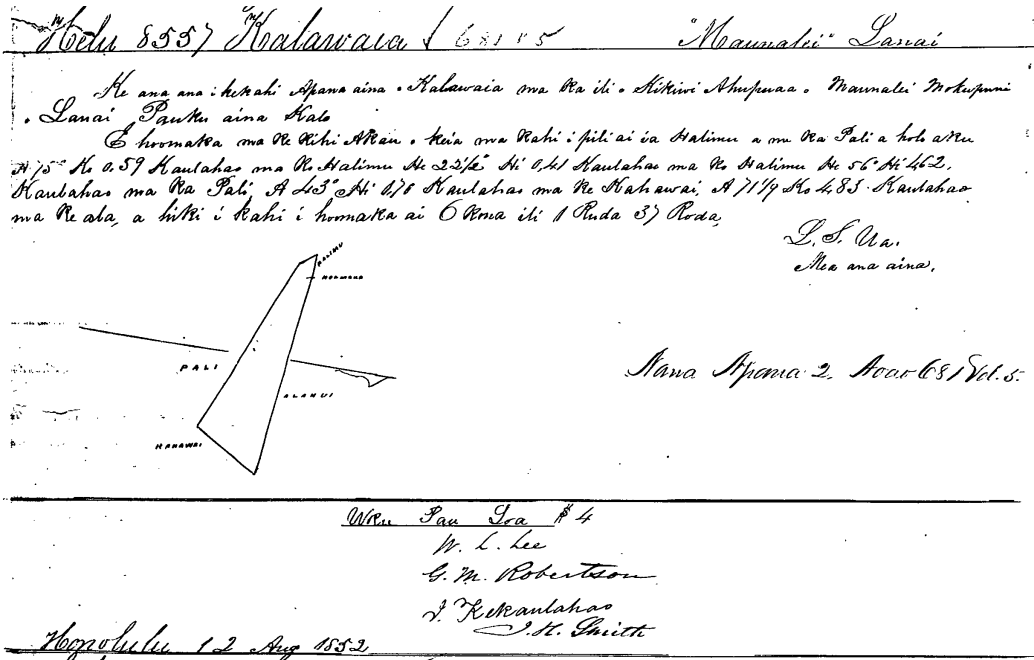 Helu 8557 Kalawaia "Maunalei" Lanai
Ke ana ana i kekahi Apana aina o Kalawaia ma ka ili o Kikiwi Ahupuaa o Maunalei Mokupuni
o Lanai Pauku aina Kalo
E hoomaka ma ke Kihi Akau o keia ma kahi i pili ai ia Halimu a me ka Pali a holo aku
A 75° Ko 0.59 Kaulahao ma ko Halimu He 22½° Hi 0,41 Kaulahao ma ko Halimu He 56° Hi 4.62.
Kaulahao ma ka Pali, A 43° Hi 0,76 Kaulahao ma ke Kahawai, A 71¼ Ko 4,83 Kaulahao
ma ke ala, a hiki i kahi i hoomaka ai 6 Kona ili 1 Ruda 37 Roda,
L. S. Ua.
Mea ana aina.
HALIMU
PALI
ALANUI
KAHAWAI
Nana Apana 2. Aoao 681 Vol. 5.
Uku Pau Loa $4
W. L. Lee
G. M. Robertson
J. Kekaulahao
J. H. Smith
Honolulu 12 Aug 1852